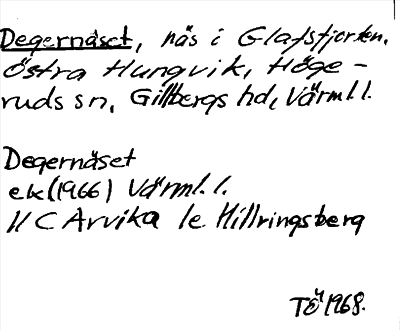 Degernäset, näs i Glafsfjorden,
östra Hungvik, Höge-
ruds sn, Gillbergs hd, Värml.l.
Degernäset
ek (1966) Värml. l.
11 C Arvika 1e Hillringsberg
TÖ 1968.